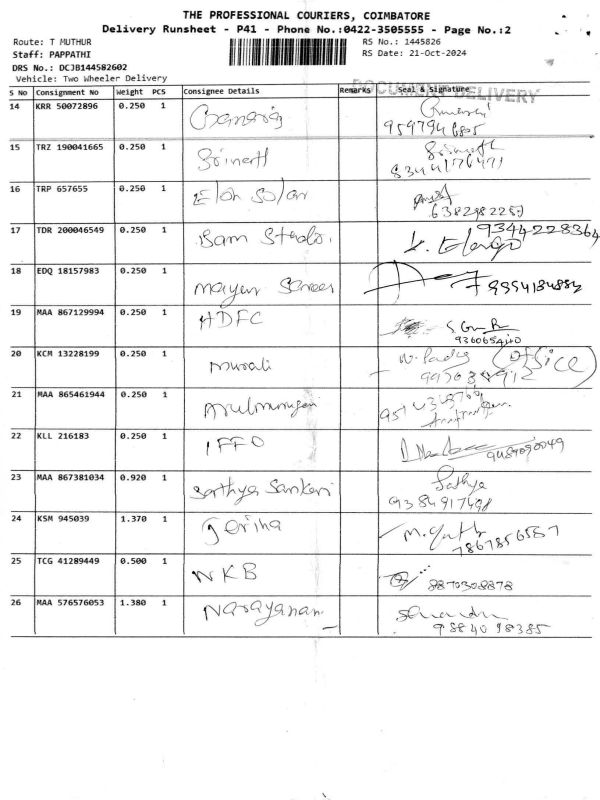 THE PROFESSIONAL COURIERS, COIMBATORE
Delivery Runsheet - P41 - Phone No.:0422-3505555 - Page No.:2
Route: T MUTHUR RS No.: 1445826
Staff: PAPPATHI RS Date: 21-Oct-2024
DRS No.: DCJB144582602
Vehicle: Two Wheeler Delivery
DOCUMENT DELIVERY
S No Consignment No Weight PCS Consignee Details Remarks Seal & Signature
14 KRR 50072896 0.250 1
9597946805
15 TRZ 190041665 0.250 1 Srinath
8344176471
16 TRP 657655 0.250 1 Elon Solar
17 TDR 200046549 0.250 1 9344228364
K. Elango
18 EDQ 18157983 0.250 1
19 MAA 867129994 0.250 1 HDFC
20 KCM 13228199 0.250 1 Murali (Office)
21 MAA 865461944 0.250 1
22 KLL 216183 0.250 1 IFFO
23 MAA 867381034 0.920 1 Sathya Sankari Sathya
9384917498
24 KSM 945039 1.370 1 Jerina
7867856587
25 TCG 41289449 0.500 1 NKB 8870308878
26 MAA 576576053 1.380 1 Narayanan
9884098385